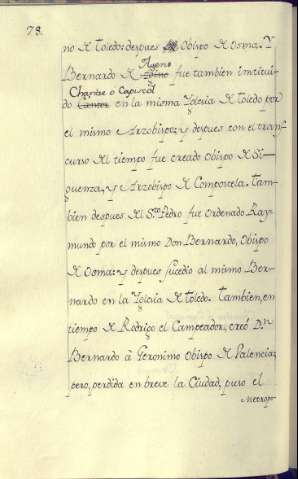 78.
no de Toledo: despues Obispo de Osma. Y
Ageno
Bernardo de fue tambien institui-
Chantre ó Capiscol
do Cantor en la misma Yglesia de Toledo por
el mismo Arzobispo: y despues con el trans-
curso del tiempo fue creado Obispo de Si-
guenza, y Arzobispo de Compostela. Tam-
bien despues de Sn. Pedro fue ordenado Ray-
mundo por el mismo Don Bernardo, Obispo
de Osma: y despues sucedio al mismo Ber-
nardo en la Yglesia de Toledo. Tambien, en
tiempo de Rodrigo el Campeador, creó Dn.
Bernardo à Geronimo Obispo de Palencia;
pero, perdida en breve la Ciudad, puso el
Metropo-